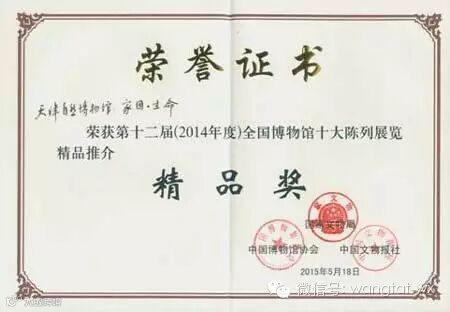 荣誉证书
天津自然博物馆 家园·生命
荣获第十二届(2014年度)全国博物馆十大陈列展览
精品推介
精品奖
国家文物局
中国博物馆协会 中国文物报社
2015年5月18日
微信号: wangtat